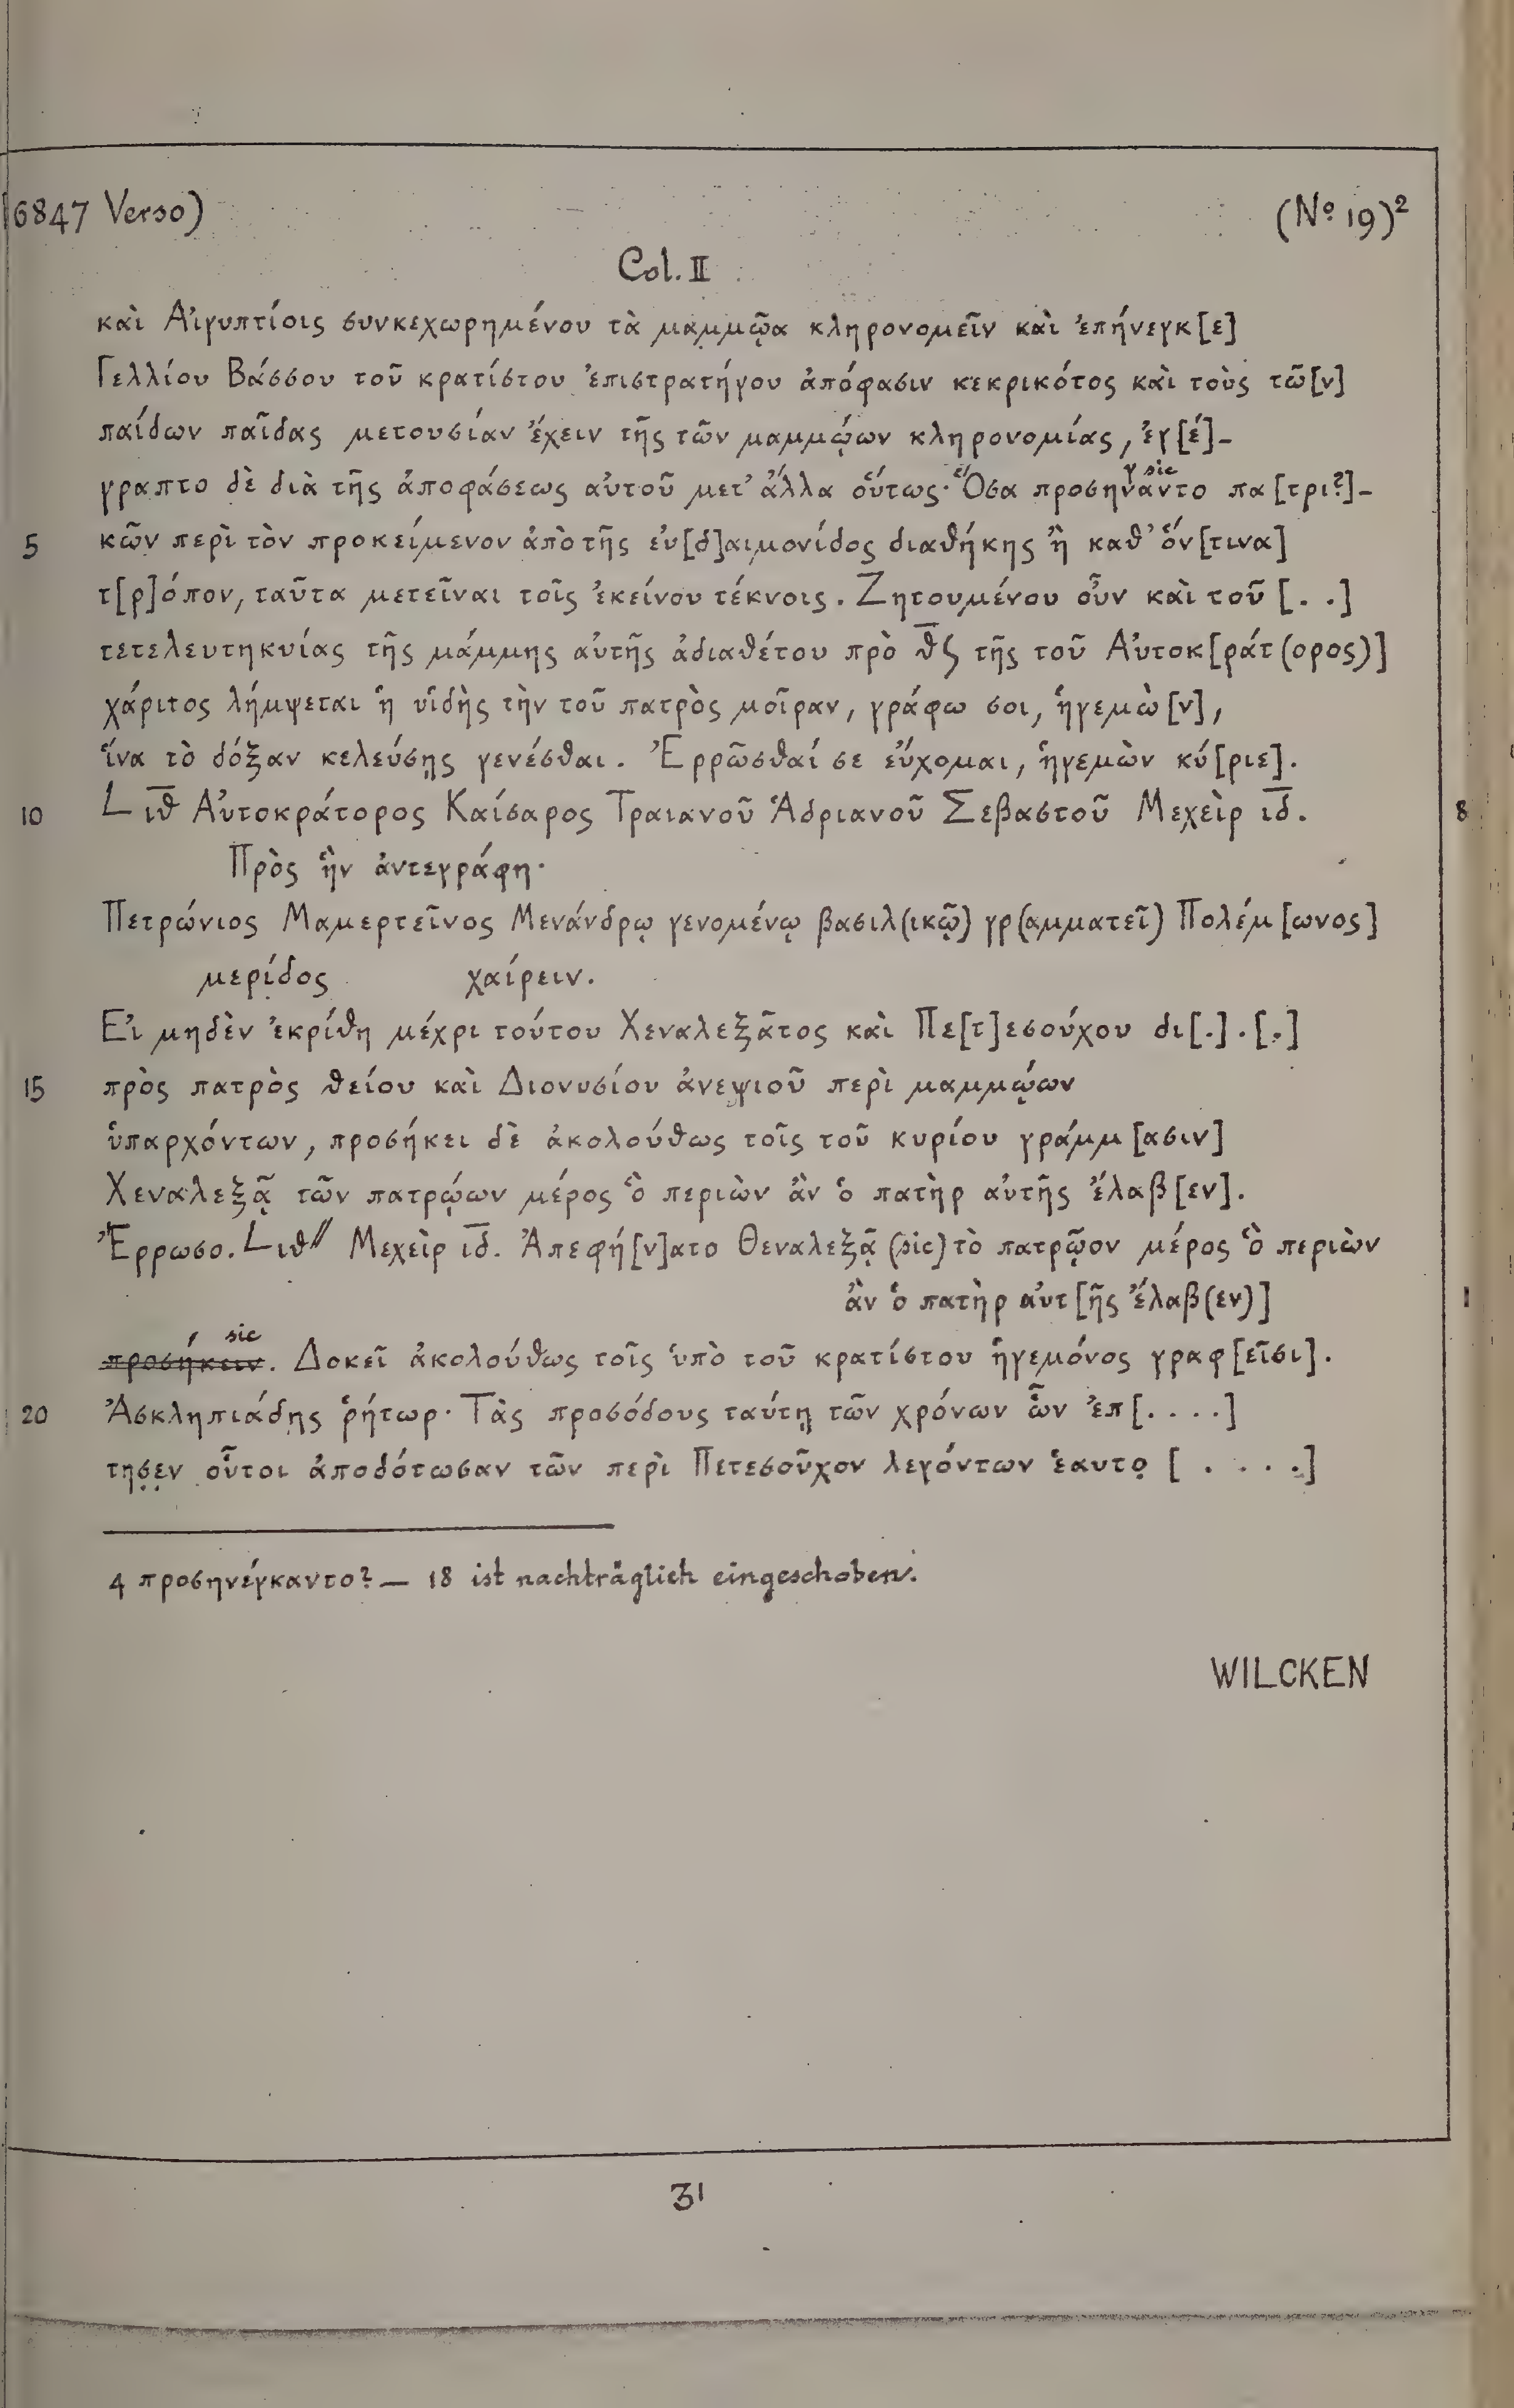 (6847 Verso) (No 19)²
Col. II
καὶ Αἰγυπτίοις συνκεχωρημένου τὰ μαμμῷα κληρονομεῖν καὶ ἐπήνεγκ[ε]
Γελλίου Βάσσου τοῦ κρατίστου ἐπιστρατήγου ἀπόφασιν κεκρικότος καὶ τοὺς τῶ[ν]
παίδων παῖδας μετουσίαν ἔχειν τῆς τῶν μαμμῴων κληρονομίας, ἐγ[έ]-
γραπτο δὲ διὰ τῆς ἀποφάσεως αὐτοῦ μετ' ἄλλα οὕτως· Ὅσα προσηναντο πα[τρι?]-
γ sic
5 κῶν περὶ τὸν προκείμενον ἀπὸ τῆς εὐ[δ]αιμονίδος διαθήκης ἢ καθ' ὅν[τινα]
τ[ρ]όπον, ταῦτα μετεῖναι τοῖς ἐκείνου τέκνοις. Ζητουμένου οὖν καὶ τοῦ [. .]
τετελευτηκυίας τῆς μάμμης αὐτῆς ἀδιαθέτου πρὸ θ̅ϛ τῆς τοῦ Αὐτοκ[ράτ(ορος)]
χάριτος λήμψεται ἡ υἱδὴς τὴν τοῦ πατρὸς μοῖραν, γράφω σοι, ἡγεμὼ[ν],
ἵνα τὸ δόξαν κελεύσῃς γενέσθαι. Ἐρρῶσθαί σε εὔχομαι, ἡγεμὼν κύ[ριε].
10 L ι̅θ̅ Αὐτοκράτορος Καίσαρος Τραιανοῦ Ἁδριανοῦ Σεβαστοῦ Μεχεὶρ ι̅δ̅.
Πρὸς ἣν ἀντεγράφη·
Πετρώνιος Μαμερτεῖνος Μενάνδρῳ γενομένῳ βασιλ(ικῷ) γρ(αμματεῖ) Πολέμ[ωνος]
μερίδος χαίρειν.
Εἰ μηδὲν ἐκρίθη μέχρι τούτου Χεναλεξᾶτος καὶ Πε[τ]εσούχου δι[.].[.]
15 πρὸς πατρὸς θείου καὶ Διονυσίου ἀνεψιοῦ περὶ μαμμῴων
ὑπαρχόντων, προσήκει δὲ ἀκολούθως τοῖς τοῦ κυρίου γράμμ[ασιν]
Χεναλεξᾷ τῶν πατρῴων μέρος ὃ περιὼν ἂν ὁ πατὴρ αὐτῆς ἔλαβ[εν].
Ἔρρωσο. L ιθ// Μεχεὶρ ι̅δ̅. Ἀπεφή[ν]ατο Θεναλεξᾷ (sic) τὸ πατρῷον μέρος ὃ περιὼν
ἂν ὁ πατὴρ αὐτ[ῆς ἔλαβ(εν)]
sic
προσήκειν. Δοκεῖ ἀκολούθως τοῖς ὑπὸ τοῦ κρατίστου ἡγεμόνος γραφ[εῖσι].
20 Ἀσκληπιάδης ῥήτωρ· Τὰς προσόδους ταύτῃ τῶν χρόνων ὧν ἐπ[. . . .]
τησεν οὗτοι ἀποδότωσαν τῶν περὶ Πετεσοῦχον λεγόντων ἑαυτο [. . . .]
4 προσηνέγκαντο? — 18 ist nachträglich eingeschoben.
WILCKEN
31